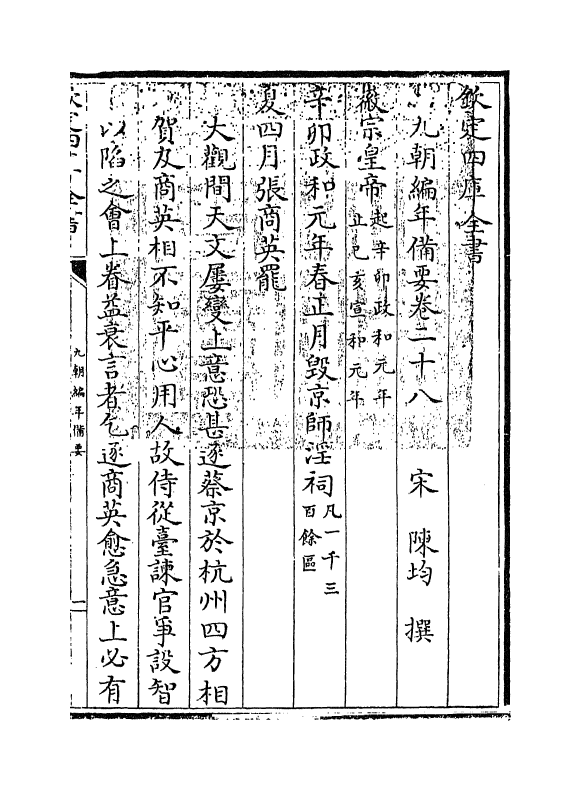 欽定四庫全書
九朝編年備要卷二十八　宋　陳均　撰
徽宗皇帝起辛卯政和元年
止己亥宣和元年
辛卯政和元年春正月毀京師淫祠凡一千三
百餘區
夏四月張商英罷
大觀間天文屢變上意恐甚遂逐蔡京於杭州四方相
賀及商英相不知平心用人故侍從臺諫官爭設智
以陷之會上眷益衰言者乞逐商英愈急意上必有
九朝編年備要